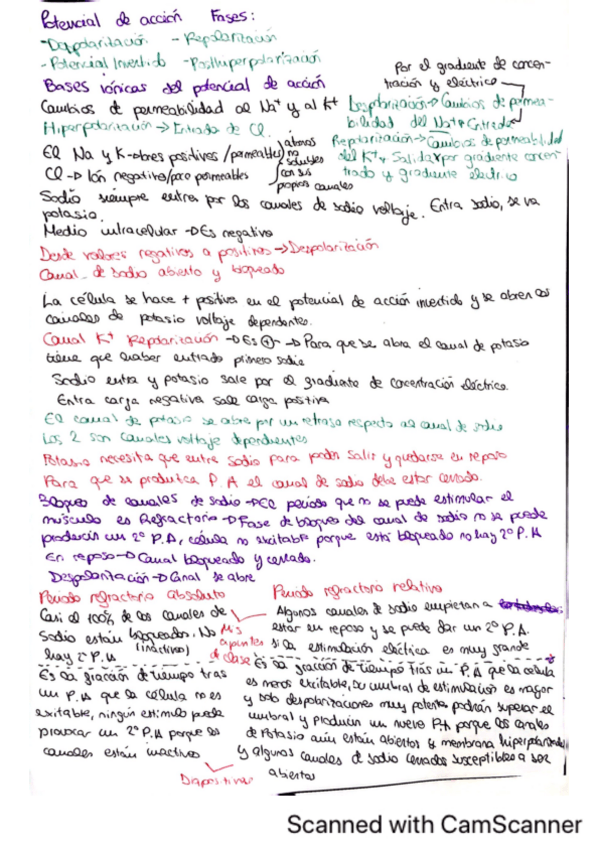 Potencial de acción Fases:
-Despolarización - Repolarización
- Potencial Invertido - Posthiperpolarización
Bases iónicas del potencial de acción
Cambios de permeabilidad al Na+ y al K+
Hiperpolarización → Entrada de Cl.
Por el gradiente de concen-
tración y eléctrico
Despolarización → Cambios de permea-
bilidad del Na+ Entrada
Repolarización → Cambios de permeabilidad
del K+ Salida por gradiente concen-
trado y gradiente eléctrico
El Na y K → Iones positivos /permeables
Cl → Ión negativo/poco permeables
átomos
no
solubles
con sus
propios canales
Sodio siempre entra por los canales de sodio voltaje. Entra sodio, se va
potasio.
Medio intracelular → Es negativo
Desde valores negativos a positivos → Despolarización
Canal de sodio abierto y bloqueado
La célula se hace + positiva en el potencial de acción invertido y se abren los
canales de potasio voltaje dependientes.
Canal K+ Repolarización → Es + → Para que se abra el canal de potasio
tiene que haber entrado primero sodio
Sodio entra y potasio sale por el gradiente de concentración eléctrico.
Entra carga negativa sale carga positiva
El canal de potasio se abre por un retraso respecto al canal de sodio
Los 2 son canales voltaje dependientes
Potasio necesita que entre sodio para poder salir y quedarse en reposo
Para que se produzca P.A el canal de sodio debe estar cerrado.
Bloqueo de canales de sodio → El periodo que no se puede estimular el
músculo es Refractario → Fase de bloqueo del canal de sodio no se puede
producir un 2º P.A, célula no excitable porque está bloqueado no hay 2º P.A
En reposo → Canal bloqueado y cerrado.
Despolarización → Canal se abre
Periodo refractario absoluto
Casi el 100% de los canales de
Sodio están bloqueados. No
(inactivo)
hay 2º P.A
Periodo refractario relativo
Algunos canales de sodio empiezan a
estar en reposo y se puede dar un 2º P.A.
si la estimulación eléctrica es muy grande
Mis
apuntes
de clase
Es la fracción de tiempo tras
un P.A que la célula no es
excitable, ningún estímulo puede
provocar un 2º P.A porque los
canales están inactivos
Es la fracción de tiempo tras un P.A que la célula
es menos excitable, su umbral de estimulación es mayor
y solo despolarizaciones muy potentes podrán superar el
umbral y producir un nuevo P.A porque los canales
de Potasio aún están abiertos y membrana hiperpolarizada
y algunos canales de sodio cerrados susceptibles a ser
abiertos
Diapositivas
Scanned with CamScanner